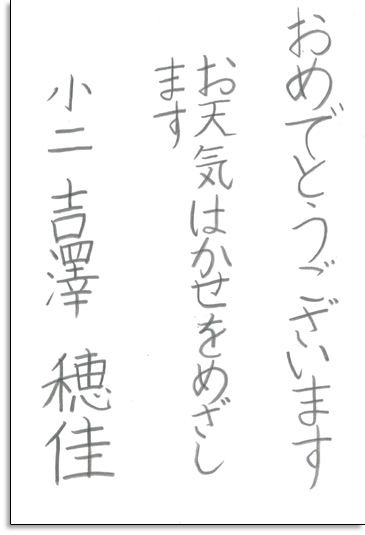 おめでとうございます
お天気はかせをめざし
ます
小二 吉澤 穂佳